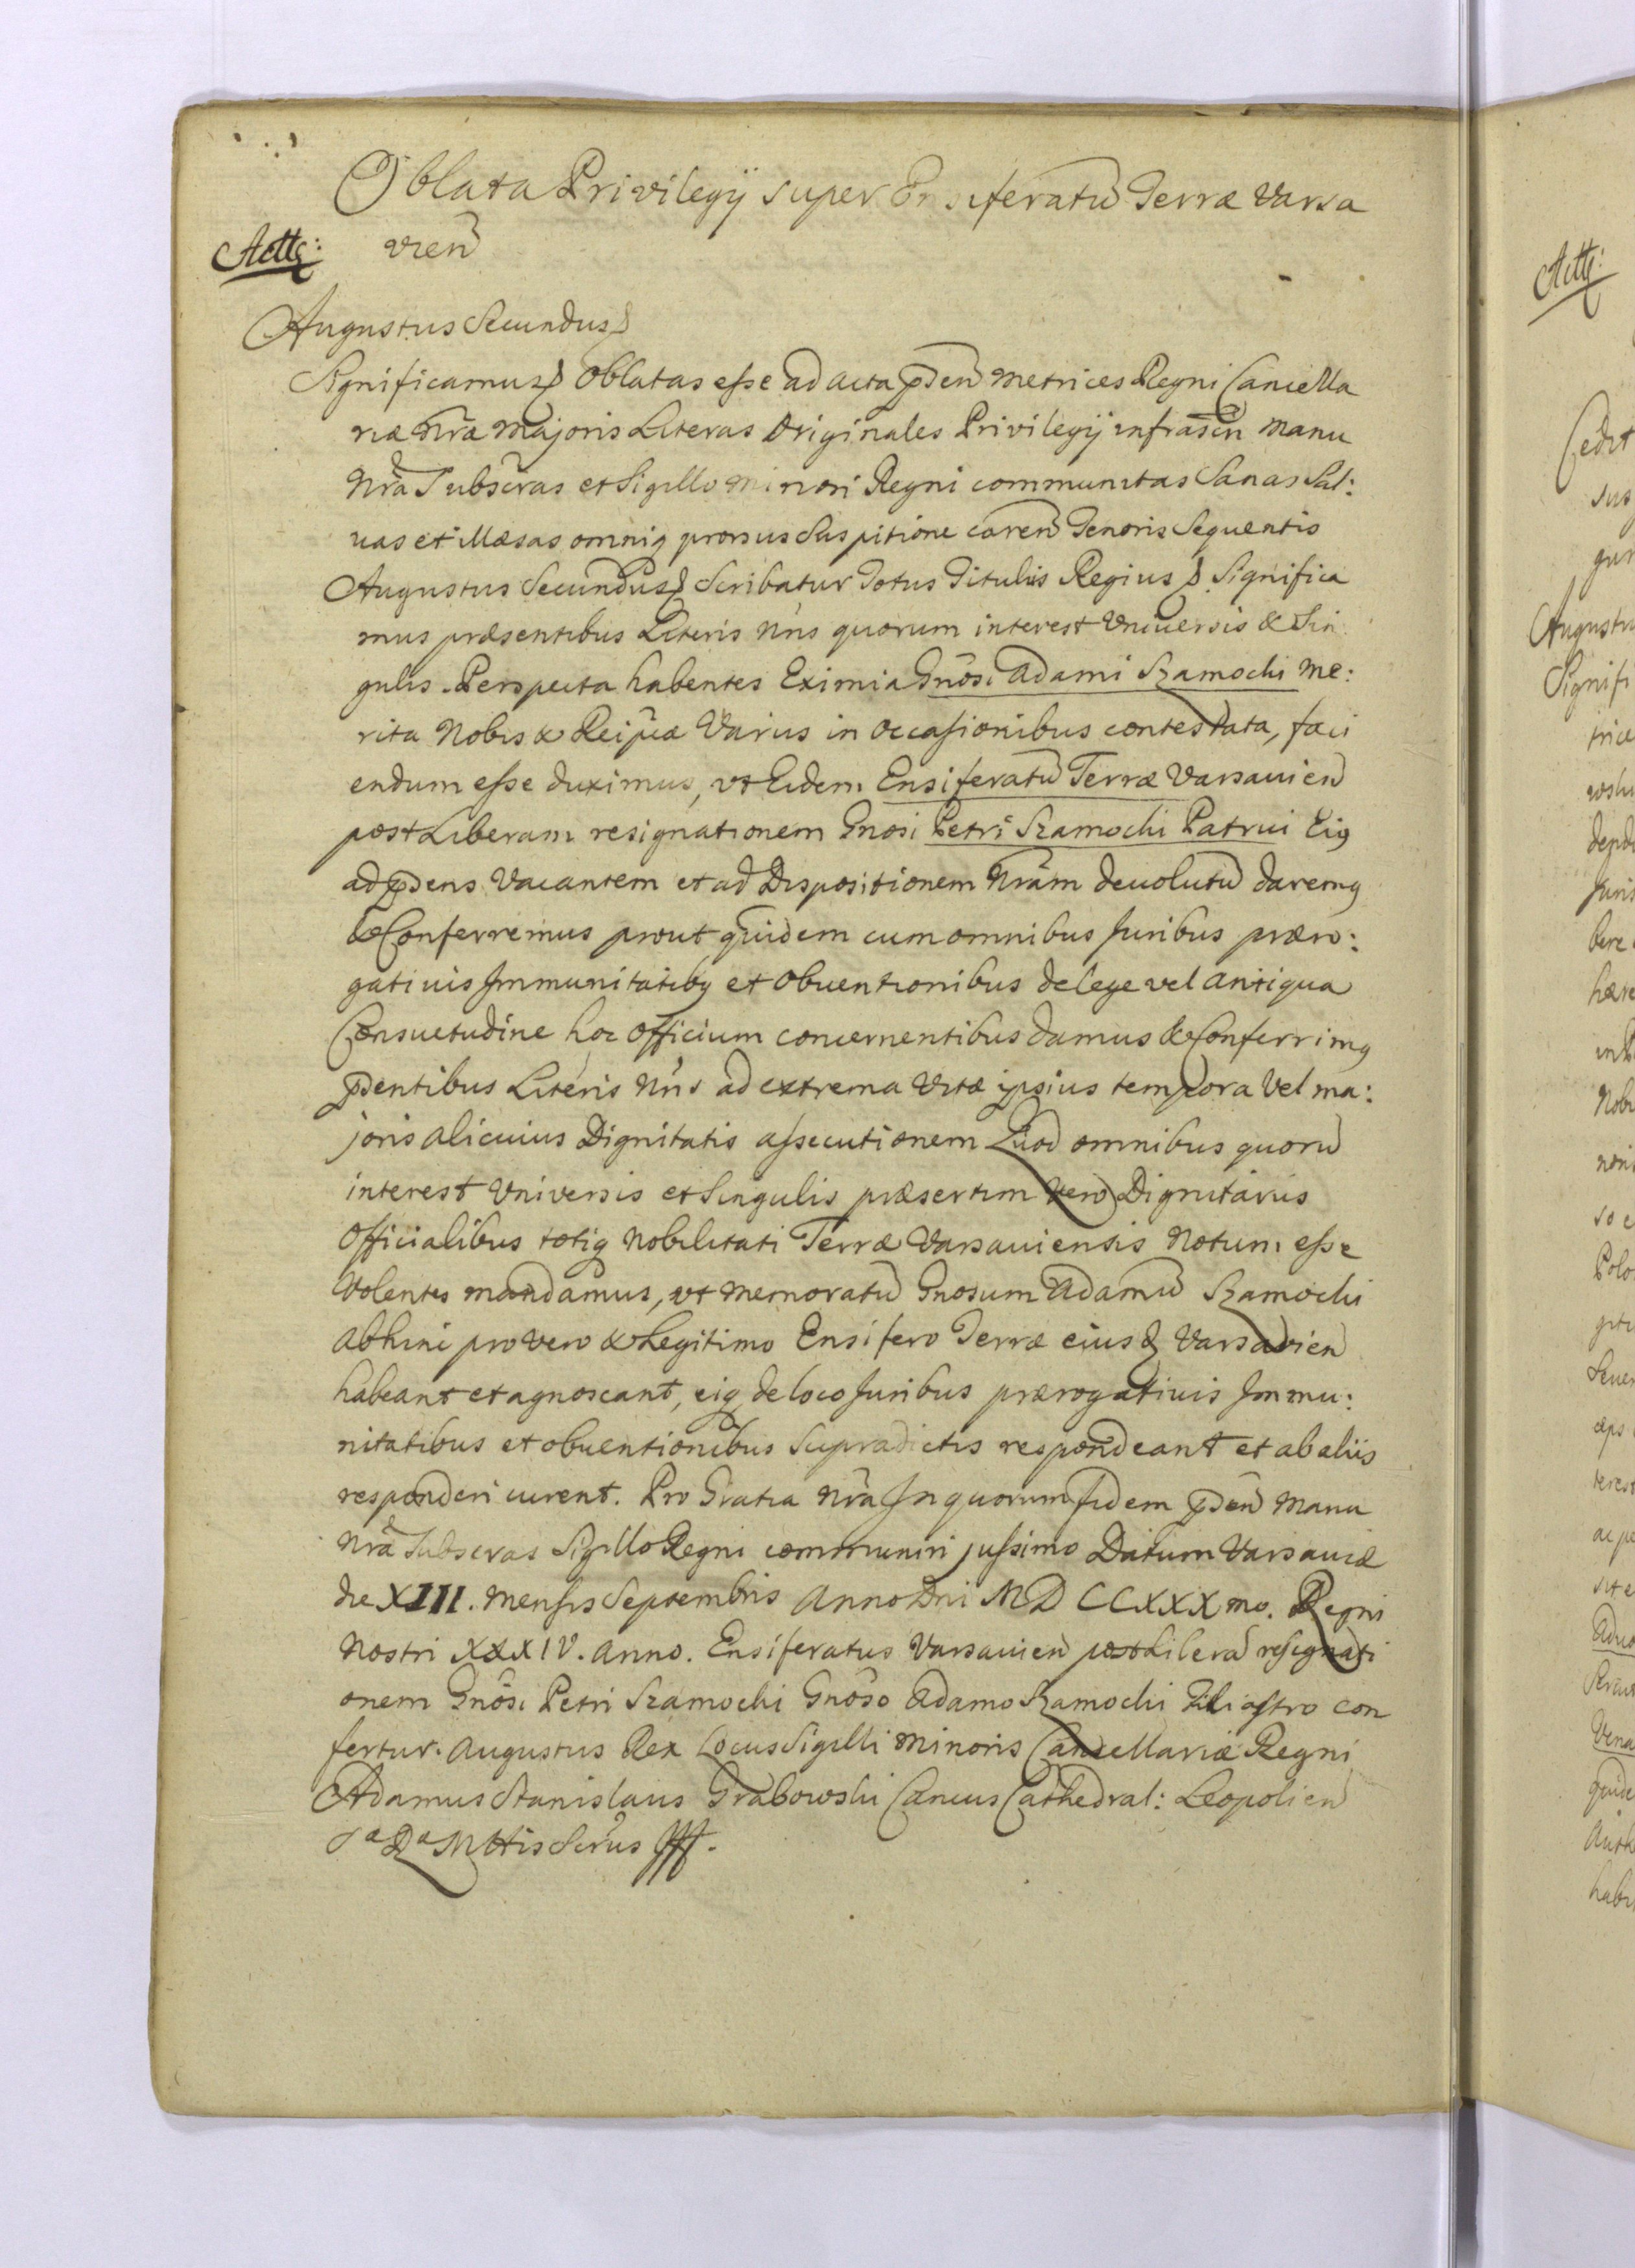 Oblata Privilegij super Ensiferatu Terræ Varsa
vien
Actte:
Augustus Secundus
Significamus Oblatas esse ad acta pden metrices Regni Cancella
riæ Nræ Majoris Literas Originales Privilegij infrascri manu
Nra Subscras et Sigillo minori Regni communitas Sanas Sal:
uas et illæsas omniq prorsus Suspitione caren Tenoris Sequentis
Augustus Secundus Scribatur Totus Titulus Regius Significa
mus præsentibus Literis Nris quorum interest Universis & Sin
gulis. Perspecta habentes Eximia Gnosi Adami Szamocki Me:
rita Nobis & Reipcæ Varijs in occasionibus contestata, faci
endum esse duximus, vt Eidem Ensiferatu Terræ Varsavien
post Liberam resignationem Gnosi Petri Szamocki Patrui Eiq
ad pdens Vacantem et ad Dispositionem Nram devolutu daremq
& Conferremus prout quidem cum omnibus Juribus præro:
gatiuis Immunitatibq et obventionibus de lege vel antiqua
Consuetudine hoc officium concernentibus damus & Conferrimq
pdentibus Literis Nris ad extrema Vitæ ipsius tempora Vel ma:
joris alicuius Dignitatis assecutionem Quod omnibus quoru
interest Vniversis et Singulis præsertim Vero Dignitarijs
Officialibus totiq Nobilitati Terræ Varsaviensis Notum esse
Volentes mandamus, vt memoratu Gnosum Adamu Szamocki
abhinc pro vero & Legitimo Ensifero Terræ eiusd Varsavien
habeant et agnoscant, eiq de loco Juribus prærogatiuis Immu:
nitatibus et obuentionibus Supradictis respondeant et ab aliis
responderi curent. Pro Gratia Nra In quorum fidem pden Manu
Nra Subscras Sigillo Regni communiri jussimo Datum Varsaviæ
die XIII. Mensis Septembris Anno Dni MDCCXXXmo. Regni
Nostri XXXIV. anno. Ensiferatus Varsavien post Libera resignati
onem Gnosi Petri Szamocki Gnoso Adamo Szamocki Filiastro con
fertur. Augustus Rex Locus Sigilli Minoris Cancellariæ Regni
Adamus Stanislaus Grabowski Cancus Cathedral: Leopolien
Sa Ra Mttis Scrus